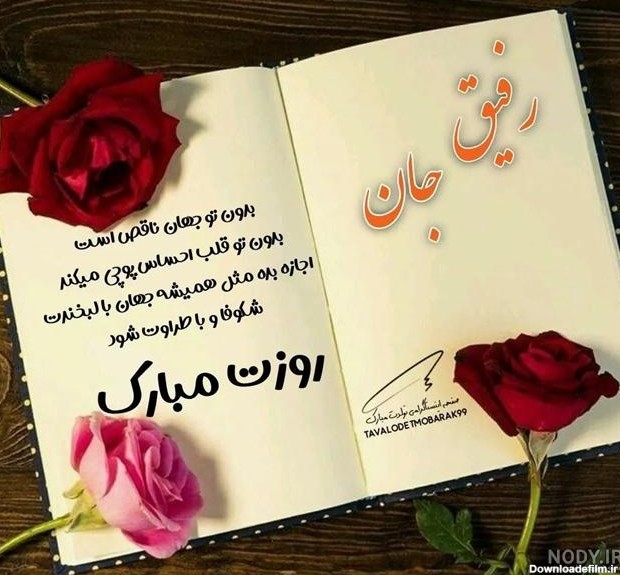 رفیق
جان
بدون تو جهان ناقص است
بدون تو قلب احساس پوچی میکند
اجازه بده مثل همیشه جهان با لبخندت
شکوفا و با طراوت شود
روزت مبارک
صفحه اینستاگرامی تولدت مبارک
TAVALODETMOBARAK99
NODY.IR
Downloadefilm.ir